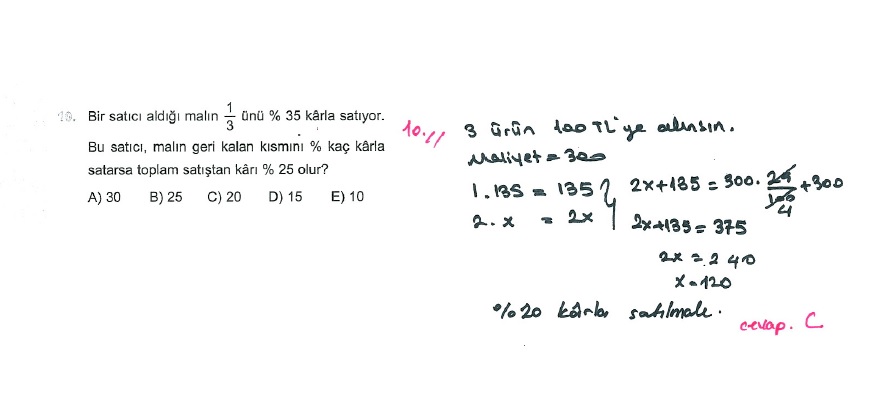 10. Bir satıcı aldığı malın 1/3 ünü % 35 kârla satıyor.
Bu satıcı, malın geri kalan kısmını % kaç kârla
satarsa toplam satıştan kârı % 25 olur?
A) 30 B) 25 C) 20 D) 15 E) 10
10.//
3 ürün 100 TL'ye alınsın.
Maliyet = 300
1.135 = 135
2.x = 2x
2x+135 = 300. 25/100 4 +300
2x+135 = 375
2x = 240
x = 120
%20 kârla satılmalı.
cevap. C